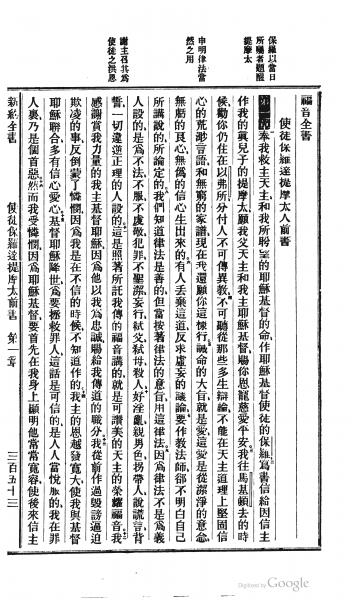 福音全書
使徒保羅達提摩太人前書
保羅以當日
所囑者題醒
提摩太
申明律法當
然之用
謝主召其爲
使徒之洪恩
第一章 奉我救主天主和我所盼望的耶穌基督的命作耶穌基督使徒的保羅寫書信給因信主
作我的眞兒子的提摩太願我父天主和我主耶穌基督賜你恩寵慈愛平安我往馬基頓去的時
候勸你仍住在以弗所分付人不可傳異教不可聽從那些多生辯論不能在天主道理上堅固信
心的荒渺言語和無窮的家譜現在我還願你這樣行誡命的大旨就是愛這愛是從潔淨的意念
無虧的良心無僞的信心生出來的有人丟棄這道反求虛妄的議論要作教法師卻不明白自己
所講說的所論定的我們知道律法是善的但當按著律法的意旨用這律法因爲律法不是爲義
人設的是爲不法不服不虔敬犯罪不聖潔妄行弑父弑母殺人好淫亂親男色拐帶人說謊言背
誓一切違逆正理的人設的這是照著所託我傳的福音講的就是可讚美的天主的榮耀福音我
感謝賞我力量的我主基督耶穌因爲他以我爲忠誠賜給我傳道的職分我從前作過毀謗逼迫
欺凌的事反倒蒙了憐憫因爲我是在不信的時候不知道作的我主的恩越發寬大使我與基督
耶穌聯合多有信心愛心基督耶穌降世爲要拯救罪人這話是可信的是人人當悅服的我在罪
人裏乃是個首惡然而我受憐憫因爲耶穌基督要首先在我身上顯明他常常寬容使後來信主
新約全書 使徒保羅達提摩太前書 第一章 三百五十三
Digitized by Google